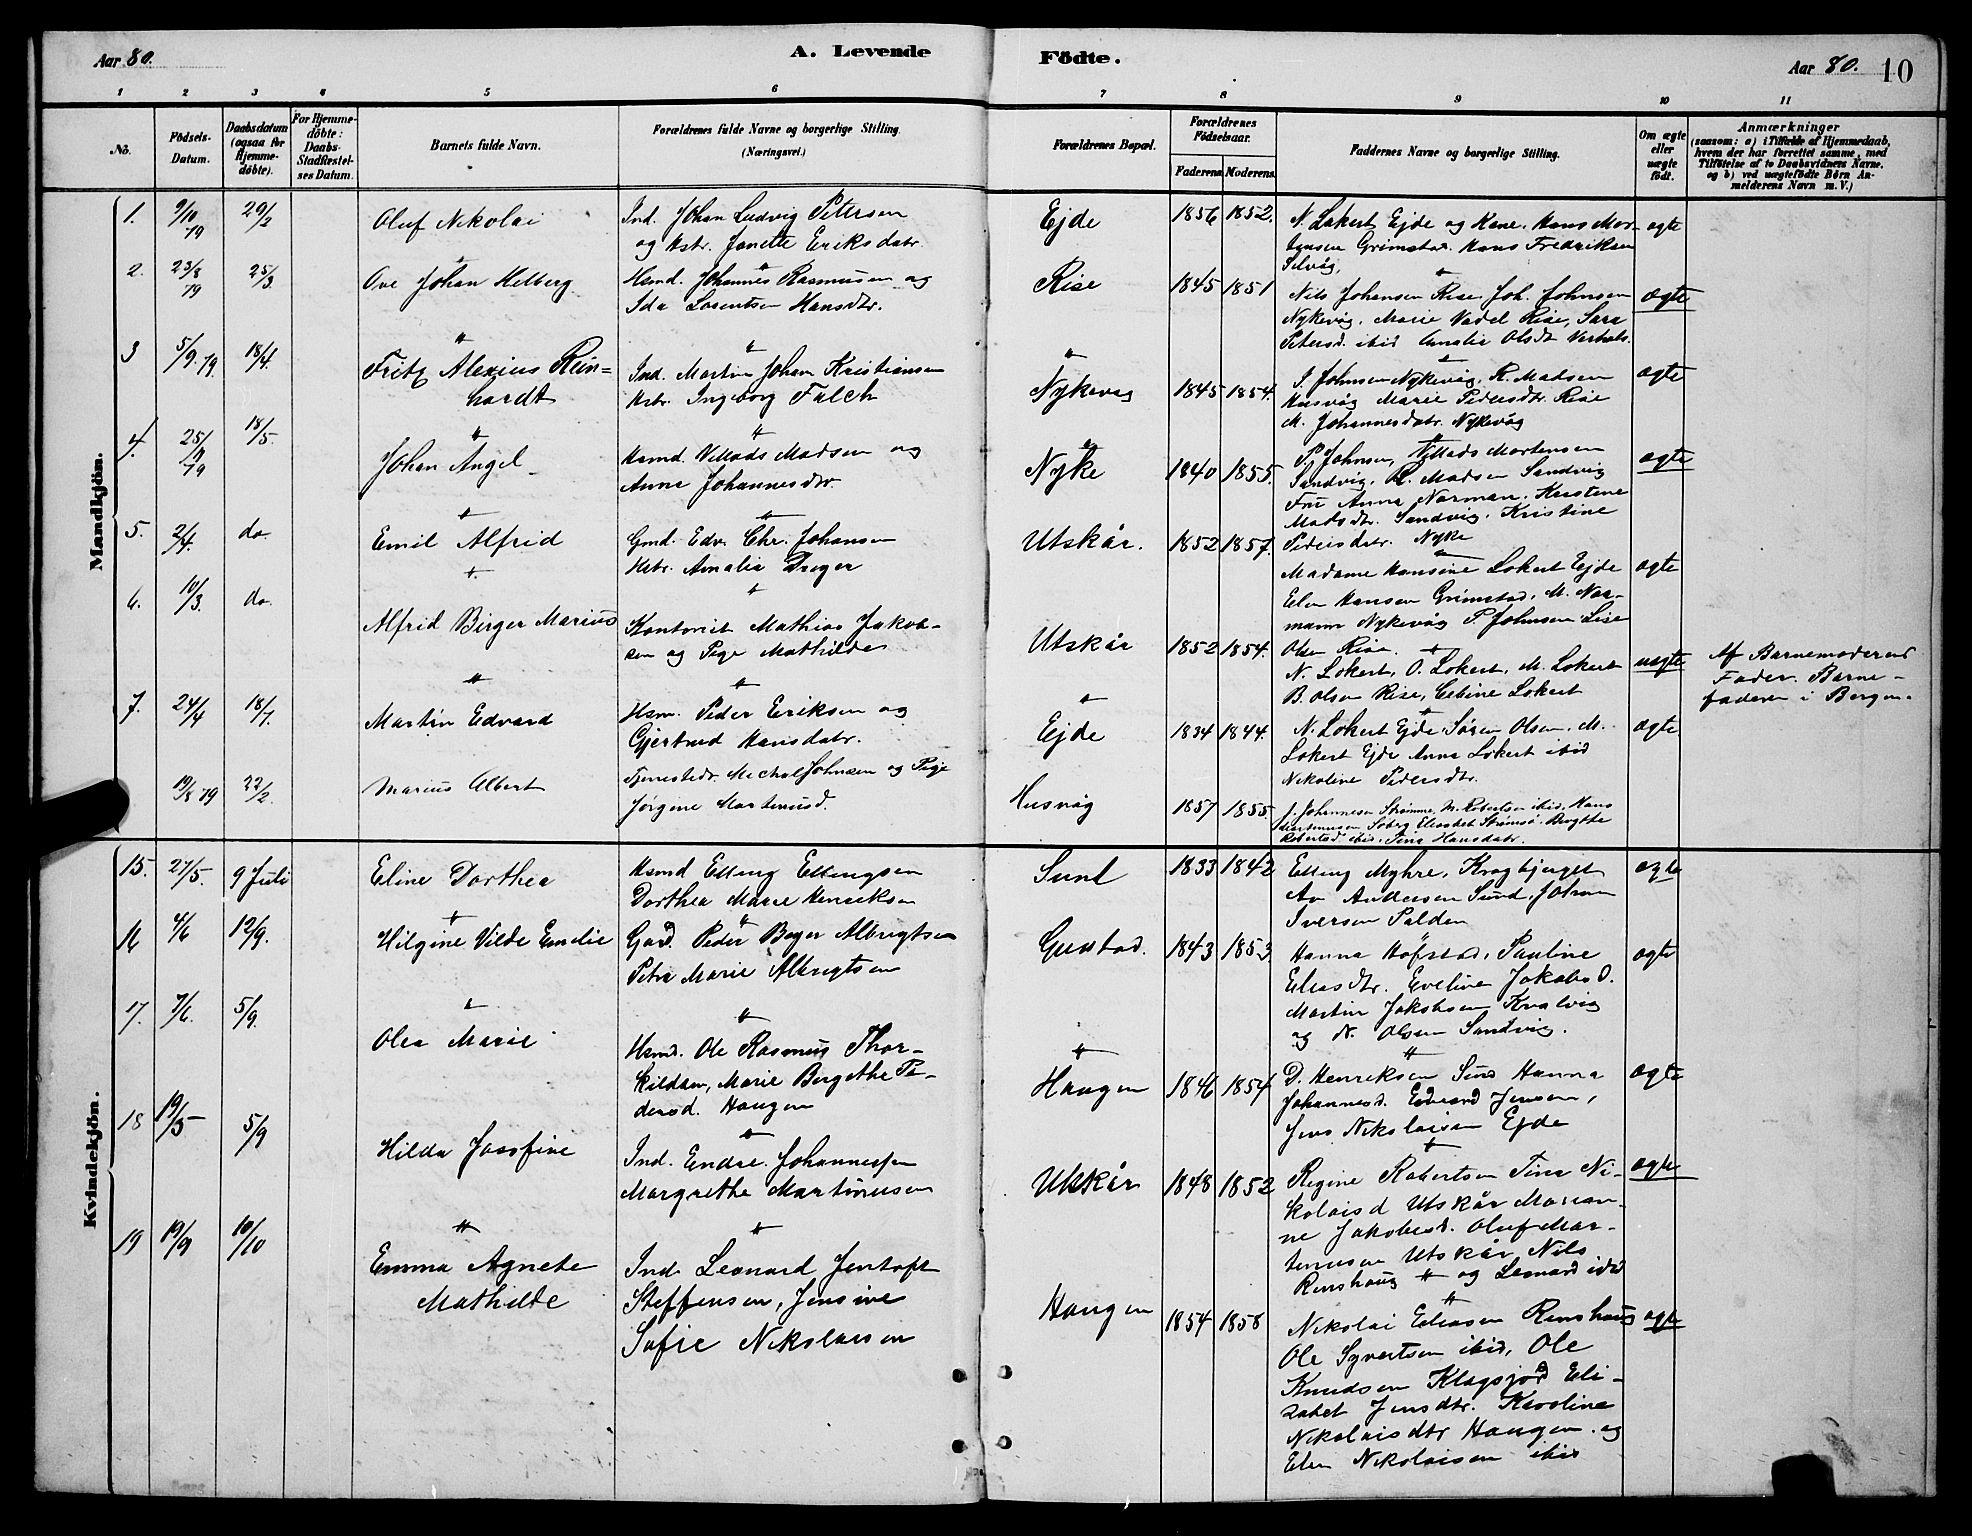 Aar 80.
A. Levende
Födte.
Aar 80. 10
1 2 3 4 5 6 7 8 9 10 11
No.
Födsels-Datum.
Daabsdatum (ogsaa for Hjemmedöbte).
For Hjemmedöbte: Daabs-Stadfæstelses Datum.
Barnets fulde Navn.
Forældrenes fulde Navne og borgerlige Stilling.
(Næringsvei.)
Forældrenes Bopæl.
Forældrenes Födselsaar.
Faderens Moderens
Faddernes Navne og borgerlige Stilling.
Om ægte eller uægte födt.
Anmærkninger
(saasom: a) i Tilfælde af Hjemmedaab,
hvem der har forrettet samme, med
Tilföielse af to Daabsvidners Navne,
og b) ved uægtefödte Börn An-
melderens Navn m. V.)
Mandkjön.
1. 9/10 79 29/2 Oluf Nikolai
Ind. Johan Ludvig Petersen
og Hstr. Janette Eriksdatr.
Ejde 1856 1852.
N. Lokert Ejde og Kone, Hans Mor-
tensen Grimstad. Hans Fredriksen
Selvåg,
ægte
2. 23/8 79 25/3. Ove Johan Helberg
Hsmd. Johannes Rasmusen og
Ida Lorentsen Hansdtr.
Rise 1845 1851
Nils Johansen Rise, Joh. Johnsen
Nykevåg, Marie Vadel Rise, Sara
Petersd. ibid Amalie Olsdtr
ægte
3 5/9 79. 18/4. Fritz Alexius Rein=
hardt
Ind. Martin Johan Kristiansen
Hstr. Ingeborg Falch
Nykevåg 1845 1854.
J. Johnsen Nykevåg, R. Madsen
Husvåg Marie Pedersdtr. Rise
M. Johannesdatr. Nykevåg
ægte
4. 25/9 79 18/5. Johan Angel
Hsmd. Villads Madsen og
Anna Johannesdtr.
Nyke 1840 1855.
P. Johnsen, Villads Mortensen
Sandvig, R. Madsen Sandvig
Fru Anna Norman, Kristene
Madsdtr. Sandvig, Kristine
Pedersdatr. Nyke
ægte
5. 2/4. do. Emil Alfrid
Gmd. Edv. Chr. Johansen
Hstr. Amalia Dreyer
Utskår. 1852 1857.
Madame Hansine Lokert Ejde
Elen Hansen Grimstad, M. Nor-
mann Nykevåg P. Johnsen Lise
Olsen Rise.
ægte
6. 10/3. do. Alfrid Birger Marius
Kontorist Mathias Jakob-
sen og Pige Mathilde
Utskår 1852 1854.
N. Lokert, O. Lokert, M. Lokert
B. Olsen Rise, Lokert
uægte
Af Barnemoderens
Fader. Barne-
faderen i Bergen.
7. 24/4 18/7. Martin Edvard
Hsm. Peder Eriksen og
Gjertrud Hansdatr.
Ejde 1834 1844.
N. Lokert Ejde Sören Olsen, M.
Lokert Ejde Anna Lokert ibid
Nikoline Pedersdtr.
ægte
19/8 79 22/2. Marius Albert
Tjenestedr. Michal Johnsen og Pige
Jörgine Martinusd.
Husvåg 1857 1855.
J. Johannesen Strömme, M. Robertsen ibid, Hans
Martinussen Elisabet Strömsö
Robertsd ibid, Tina Hansdatr.
Kvindekjön.
15. 27/5. 9 Juli Eline Dorthea
Hsmd Elling Ellingsen
Dorthea Marie Henriksen
Sund 1833 1842
Elling Myhre, Kragbjerget
Andersen Sund, Johan
Iversen Polden
ægte
16 4/6 12/9. Hilgine Vilde Emelie
Gård. Peder Beyer Albrigtsen
Petra Marie Albrigtsen
Gustad. 1843 1853
Hanna Höfstad, Pauline
Eliasdtr. Eveline Jakobsd.
Martin Jakobsen Kvalvig
og N. Olsen Sandvig.
ægte
17. 7/6. 5/9. Olea Marie
Hsmd. Ole Rasmus Thor-
kildsen, Marie Bergethe Pe-
dersd. Haugen
Haugen 1846 1854
D. Henriksen Sund Hanna
Johannesd. Edvard Jensen,
Jens Nikolaisen Ejde
ægte
18 19/5 5/9 Hilda Josefine
Ind. Endre Johannessen
Margrethe Martinusen
Utskår 1848 1852
Regine Robertsen Tina Ni-
kolaisd Utskår Marian-
ne Jakobsd. Oluf Mar-
tinusen Utskår Nils
Renshaug og Leonard ibid
ægte
19 19/9 10/10 Emma Agnete
Mathilde
Ind. Leonard Jentoft
Steffensen, Jensine
Sofie Nikolaisen
Haugen 1854 1858
Nikolai Eliasen Renshaug
Ole Syvertsen ibid, Ole
Knudsen Klagsjord Eli-
sabet Jensdtr. Karoline
Nikolaisdtr Haugen og
Elen Nikolaisen ibid
ægte